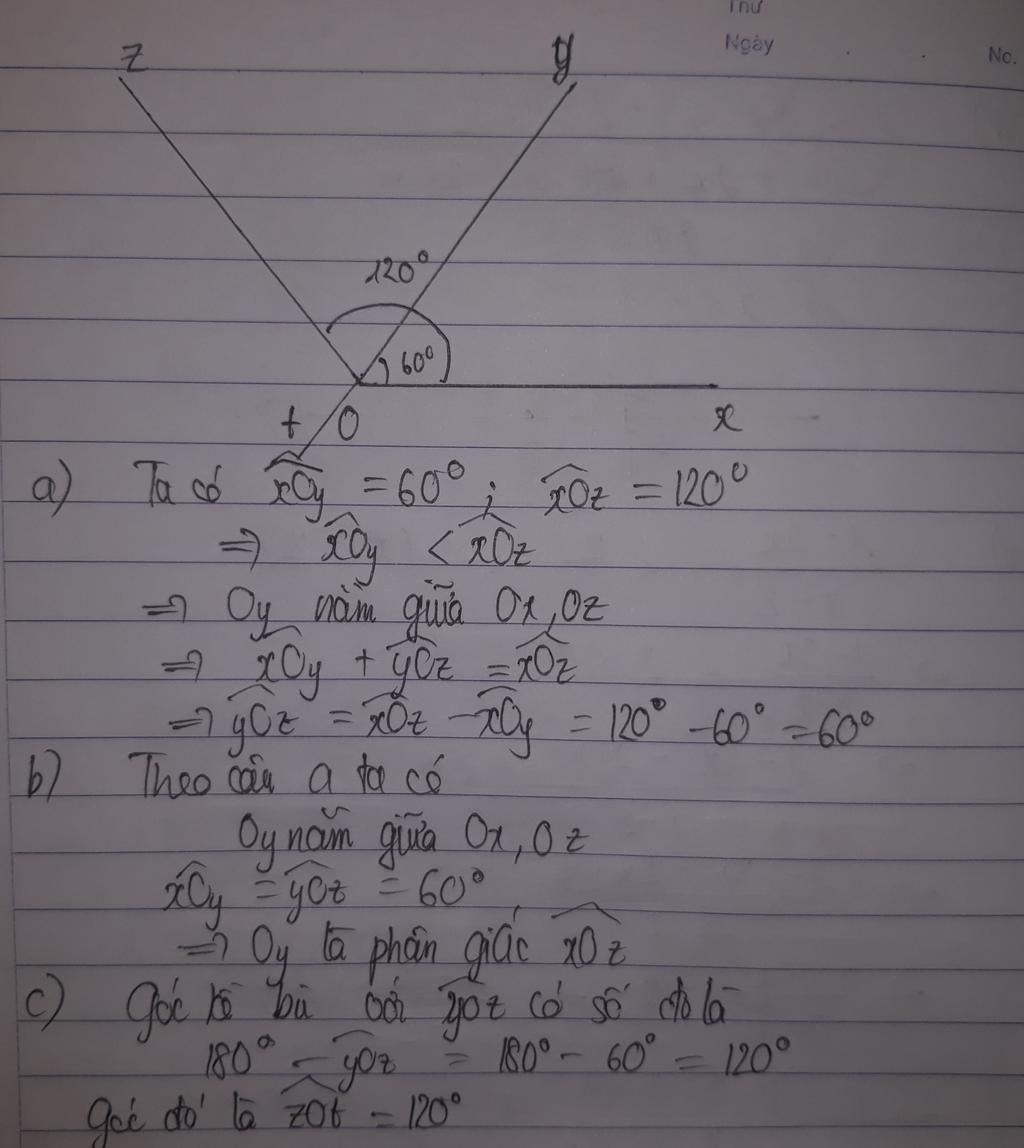 Thứ
Ngày
No.
z
y
120°
60°
t
O
x
a) Ta có $\widehat{xOy}$ = 60° ; $\widehat{xOz}$ = 120°
⇒ $\widehat{xOy}$ < $\widehat{xOz}$
⇒ Oy nằm giữa Ox, Oz
⇒ $\widehat{xOy}$ + $\widehat{yOz}$ = $\widehat{xOz}$
⇒ $\widehat{yOz}$ = $\widehat{xOz}$ - $\widehat{xOy}$ = 120° - 60° = 60°
b) Theo câu a ta có
Oy nằm giữa Ox, Oz
$\widehat{xOy}$ = $\widehat{yOz}$ = 60°
⇒ Oy là phân giác $\widehat{xOz}$
c) Góc kề bù với $\widehat{yOz}$ có số đo là
180° - $\widehat{yOz}$ = 180° - 60° = 120°
góc đó là $\widehat{zOt}$ = 120°